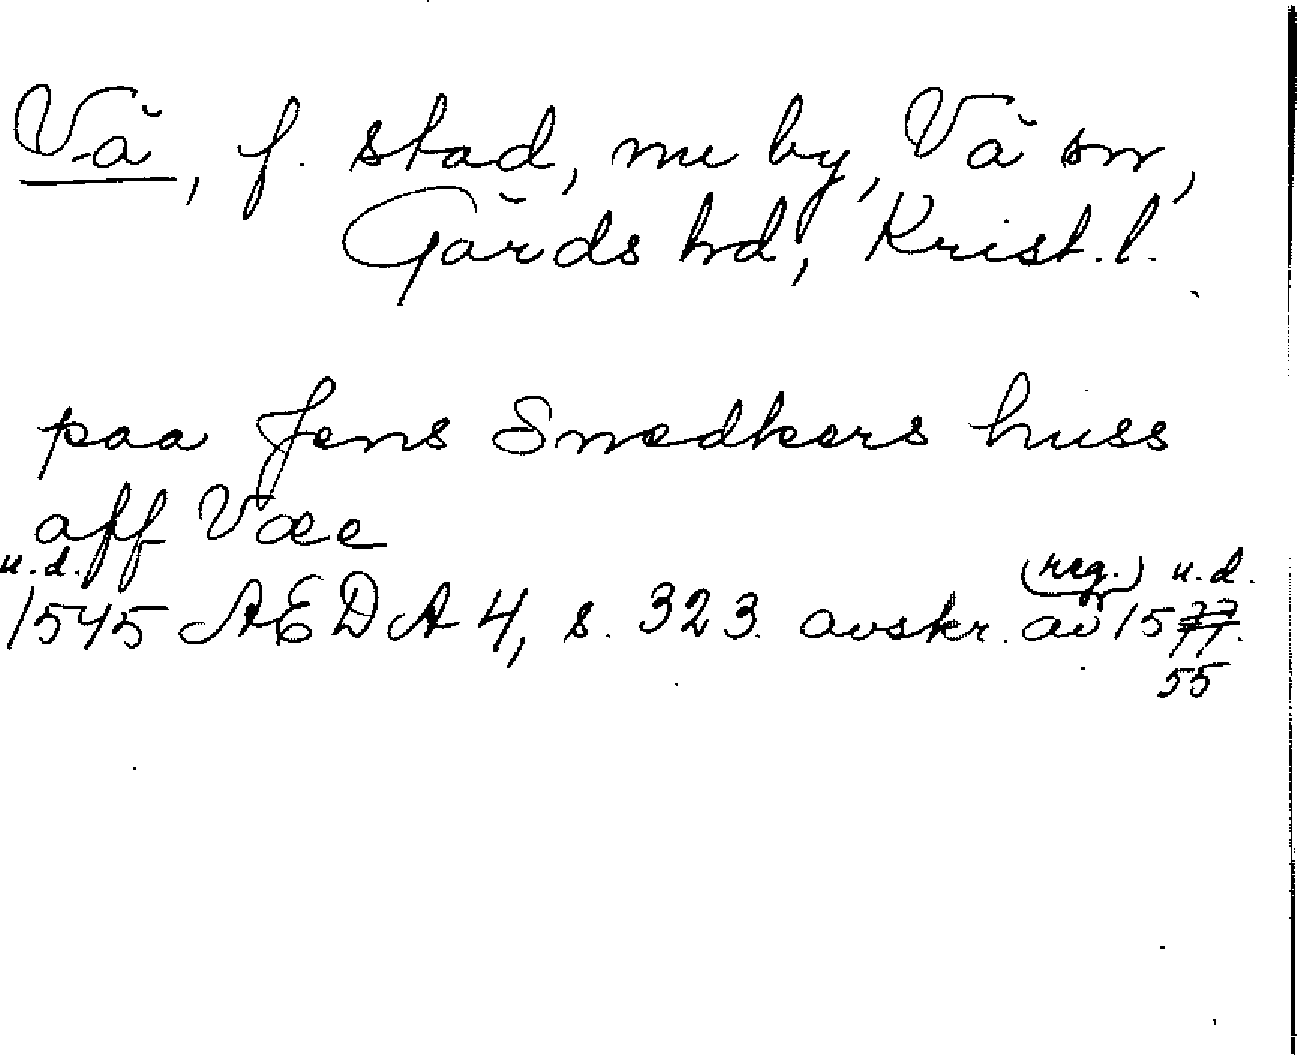 Vä, f. stad, nu by, Vä sn,
Gärds hd, Krist.l.
paa Jens Snedkers huss
aff Væe
u.d. (reg.) u.d.
1545 AEDA 4, s. 323. avskr. av 1577.
55